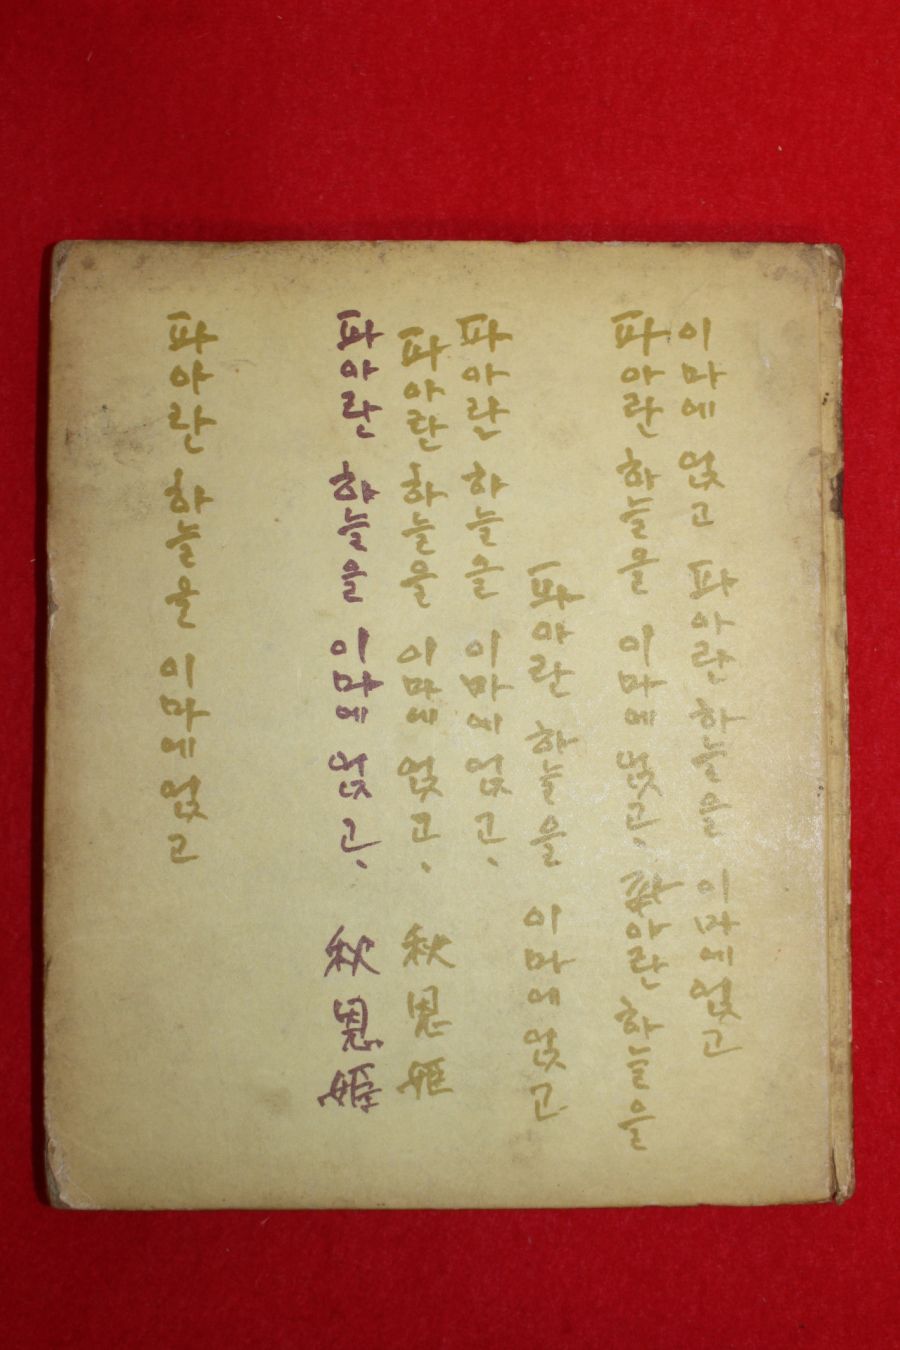 이마에 얹고 파아란 하늘을 이마에 얹고
파아란 하늘을 이마에 얹고、파아란 하늘을
파아란 하늘을 이마에 얹고
파아란 하늘을 이마에 얹고、
파아란 하늘을 이마에 얹고、 秋恩姬
파아란 하늘을 이마에 얹고、 秋恩姬
파아란 하늘을 이마에 얹고